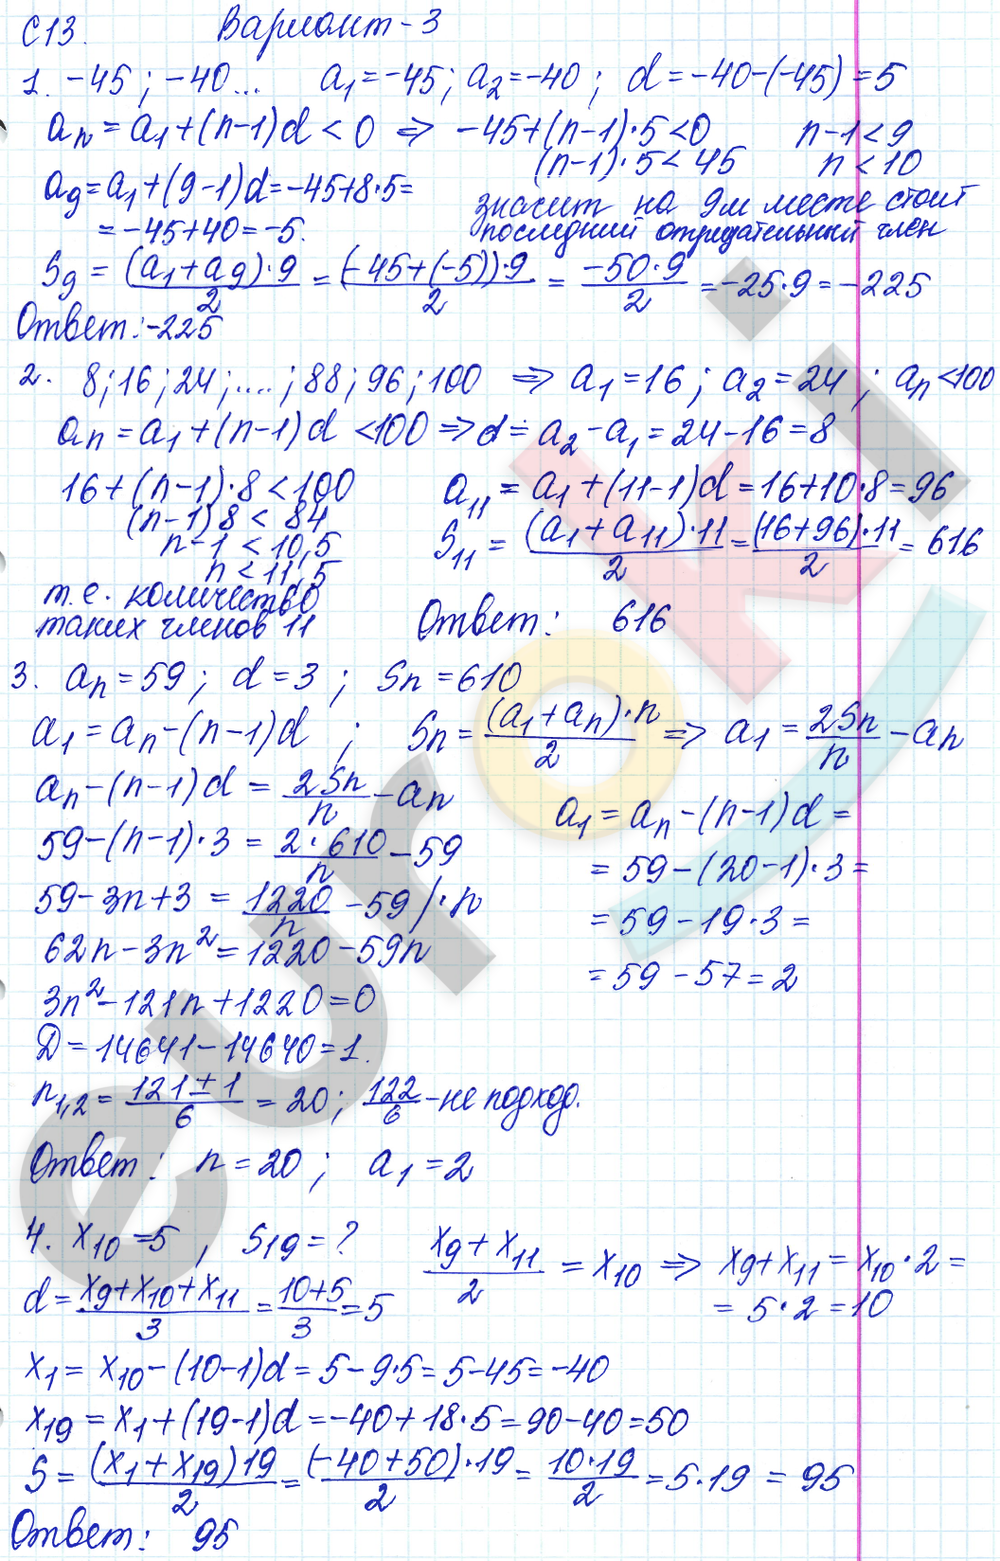 С13. Вариант-3
1. -45; -40... a₁=-45; a₂=-40; d=-40-(-45)=5
aₙ=a₁+(n-1)d<0 ⇒ -45+(n-1)·5<0 n-1<9
(n-1)·5<45 n<10
a₉=a₁+(9-1)d=-45+8·5=
=-45+40=-5.
значит на 9м месте стоит
последний отрицательный член
S₉=(a₁+a₉)·9/2=(-45+(-5))·9/2=-50·9/2=-25·9=-225
Ответ:-225
2. 8;16;24;....;88;96;100 ⇒ a₁=16; a₂=24; aₙ<100
aₙ=a₁+(n-1)d<100 ⇒ d=a₂-a₁=24-16=8
16+(n-1)·8<100
(n-1)8<84
n-1<10,5
n<11,5
т.е. количество
таких членов 11
a₁₁=a₁+(11-1)d=16+10·8=96
S₁₁=(a₁+a₁₁)·11/2=(16+96)·11/2=616
Ответ: 616
3. aₙ=59; d=3; Sₙ=610
a₁=aₙ-(n-1)d; Sₙ=(a₁+aₙ)·n/2 ⇒ a₁=2Sₙ/n-aₙ
aₙ-(n-1)d=2Sₙ/n-aₙ
59-(n-1)·3=2·610/n-59
59-3n+3=1220/n-59 |·n
62n-3n²=1220-59n
3n²-121n+1220=0
D=14641-14640=1.
n₁,₂=121±1/6=20; 122/6-не подход.
a₁=aₙ-(n-1)d=
=59-(20-1)·3=
=59-19·3=
=59-57=2
Ответ: n=20; a₁=2
4. x₁₀=5, S₁₉=? x₉+x₁₁/2=x₁₀ ⇒ x₉+x₁₁=x₁₀·2=
=5·2=10
d=x₉+x₁₀+x₁₁/3=10+5/3=5
x₁=x₁₀-(10-1)d=5-9·5=5-45=-40
x₁₉=x₁+(19-1)d=-40+18·5=90-40=50
S=(x₁+x₁₉)19/2=(-40+50)·19/2=10·19/2=5·19=95
Ответ: 95
euroki